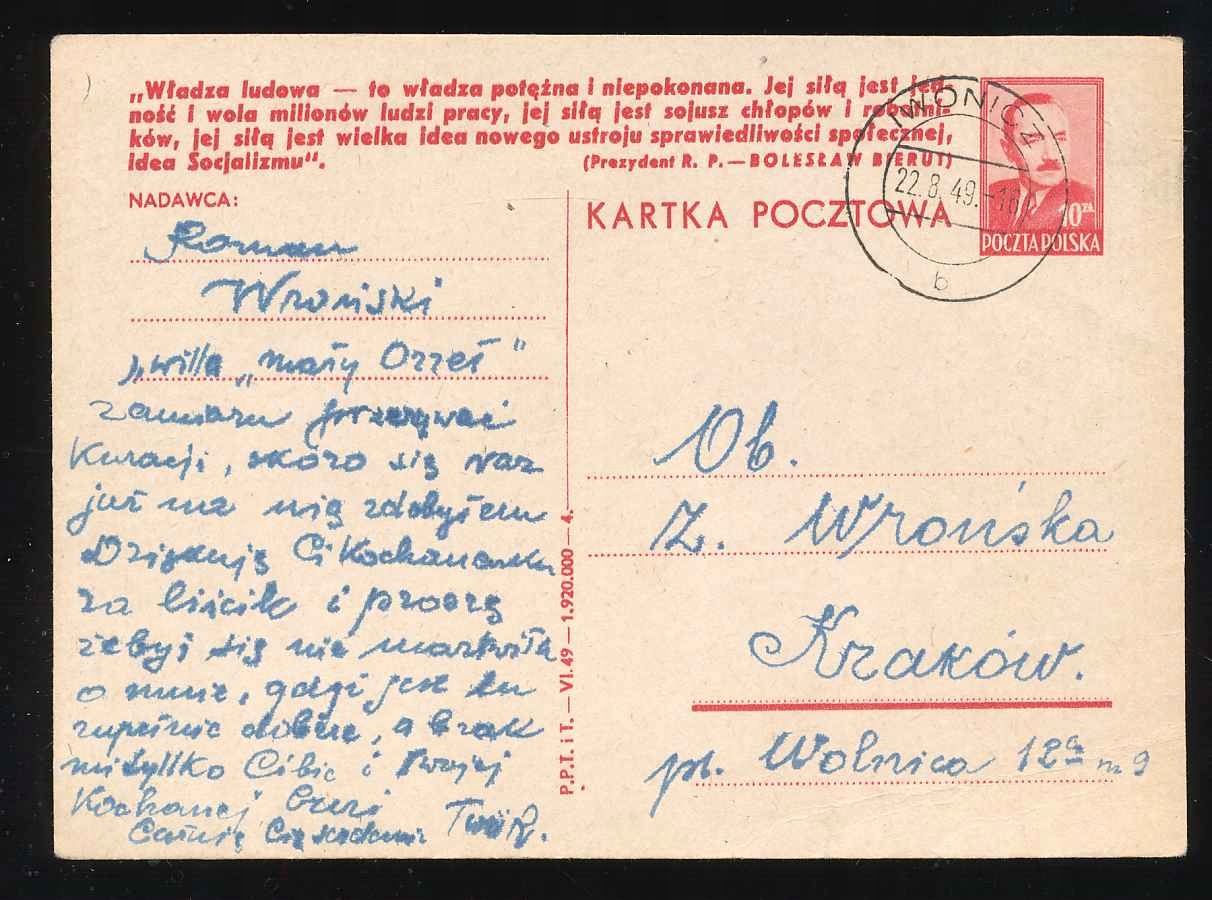 „Władza ludowa — to władza potężna i niepokonana. Jej siłą jest jed-
ność i wola milionów ludzi pracy, jej siłą jest sojusz chłopów i robotni-
ków, jej siłą jest wielka idea nowego ustroju sprawiedliwości społecznej,
idea Socjalizmu“.
(Prezydent R. P. — BOLESŁAW BIERUT)
IWONICZ
22.8.49.-18
b
10 ZŁ
POCZTA POLSKA
NADAWCA:
KARTKA POCZTOWA
Roman
Wroński
„willa „mały Orzeł"
zamiaru przerywać
Kuracji, skoro się raz
już na nią zdobyłem
Dziękuję Ci Kochaneczko
za liścik i proszę
żebyś się nie martwiła
o mnie, gdyż jest tu
zupełnie dobrze, a brak
mi tylko Ciebie i Twojej
Kochanej buzi
Całuję Cię serdecznie Twój R.
P.P.T. i T. — VI.49 — 1.920.000 — 4.
Ob.
Z. Wrońska
Kraków.
pl. Wolnica 12a m 9